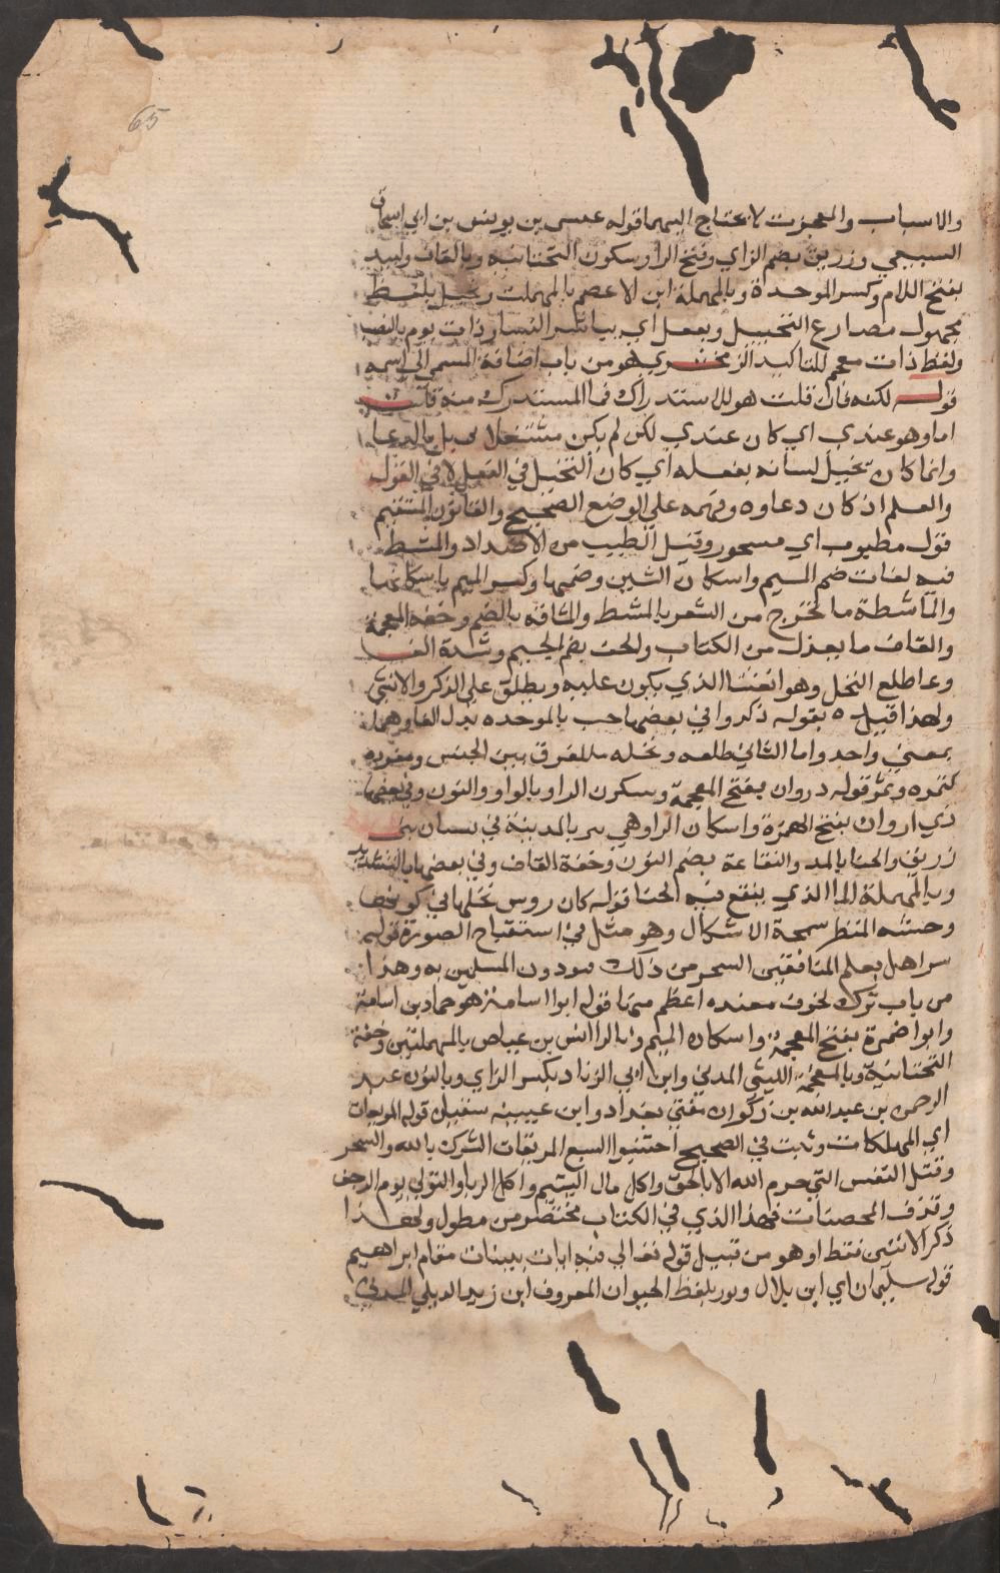 65
والاسباب والمعجزت لا يحتاج اليهما قوله عيسى بن يونس بن ابي اسحاق
السبيعي وزريق بضم الزاي وفتح الرا وسكون التحتانيه وبالقاف ولبيد
بفتح اللام وكسر الموحدة وبالمهملة ابن الاعصم بالمهملت ويخيل بلفظ
مجهول مضارع التخييل ويفعل اي يباشر النسا وذات يوم بالنصب
ولفظ ذات مقحم للتاكيد الزمخشري هو من باب اضافة المسمى الى اسمه
قوله لكنه فان قلت هو للاستدراك فما المستدرك منه قلت
اما وهو عندي اي كان عندي لكن لم يكن مشتغلا بي بل بالدعا
وانما كان تخييل لسانه بفعله اي كان التخيل في الفعل لا في القول
والعلم اذ كان دعاوه وفهمه على الوضع الصحيح والقانون المستقيم
قوله مطبوب اي مسحور وقيل الطيب من الاضداد والمشط
فيه لغات ضم الميم واسكان الشين وضمها وكسر الميم باسكانها
والماشطة ما تخرج من الشعر بالمشط والمشاقه بالضم وخفه المعجمة
والقاف ما يعزل من الكتاب والجف بضم الجيم وشدة الفا
وعا طلع النخل وهو الغشا الذي يكون عليه ويطلق على الذكر والانثى
ولهذا قيل ه بقوله ذكر وفي بعضها جب بالموحده بدل الفا وهما
بمعنى واحد واما الثاني طلعه ونخله للفرق بين الجنس ومفرده
كتمره وتمر قوله ذروان بفتح المعجمة وسكون الرا وبالواو والنون وفي بعضها
ذي اروان بفتح الهمزة واسكان الرا وهي بير بالمدينة في بستان بني
زريق والحنا بالمد والنقاعة بضم النون وخفة القاف وفي بعضها بالتشديد
وبالمهملة الما الذي ينقع فيه الحنا قوله كان روس نخلها في كونها
وحشيه المنظر سمجة الاشكال وهو مثل في استقباح الصورة قوله
شرا هل يعلم المنافقين السحر من ذلك فيوذون المسلمين به وهذا
من باب ترك لخوف مفسده اعظم منها قوله ابوا اسامة هو حماد بن اسامة
وابوا ضمرة بفتح المعجمة واسكان الميم وبالرا انس بن عياض بالمهملتين وخفة
التحتانية وبالمعجمة الليثي المدني وابن ابي الزناد بكسر الزاي وبالنون عبد
الرحمن بن عبد الله بن زكوان مفتي بغداد وابن عيينه سفيان قوله الموبقات
اي المهلكات وثبت في الصحيح اجتنبوا السبع الموبقات الشرك بالله والسحر
وقتل النفس التي حرم الله الا بالحق واكل مال اليتيم واكل الربا والتولي يوم الزحف
وقذف المحصنات فهذا الذي في الكتاب مختصر من مطول ولهذا
ذكر الاثنين فقط او هو من قبيل قوله تعالى فيه ايات بينات مقام ابراهيم
قوله سليمان اي ابن بلال وثور بلفظ الحيوان المعروف ابن زيد الديلي المدني